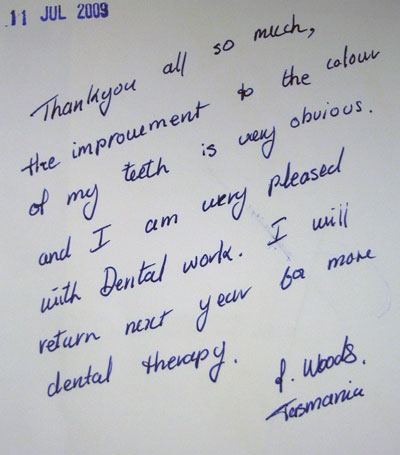 11 JUL 2009
Thankyou all so much,
the improvement to the colour
of my teeth is very obvious.
and I am very pleased
with Dental work. I will
return next year for more
dental therapy.
P. Woods.
Tasmania